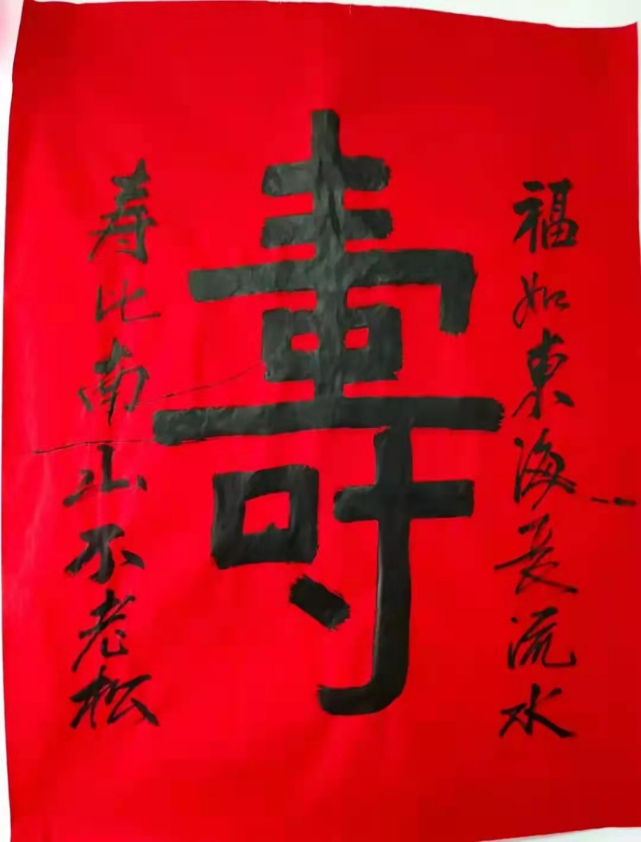 福如東海长流水
壽
寿比南山不老松